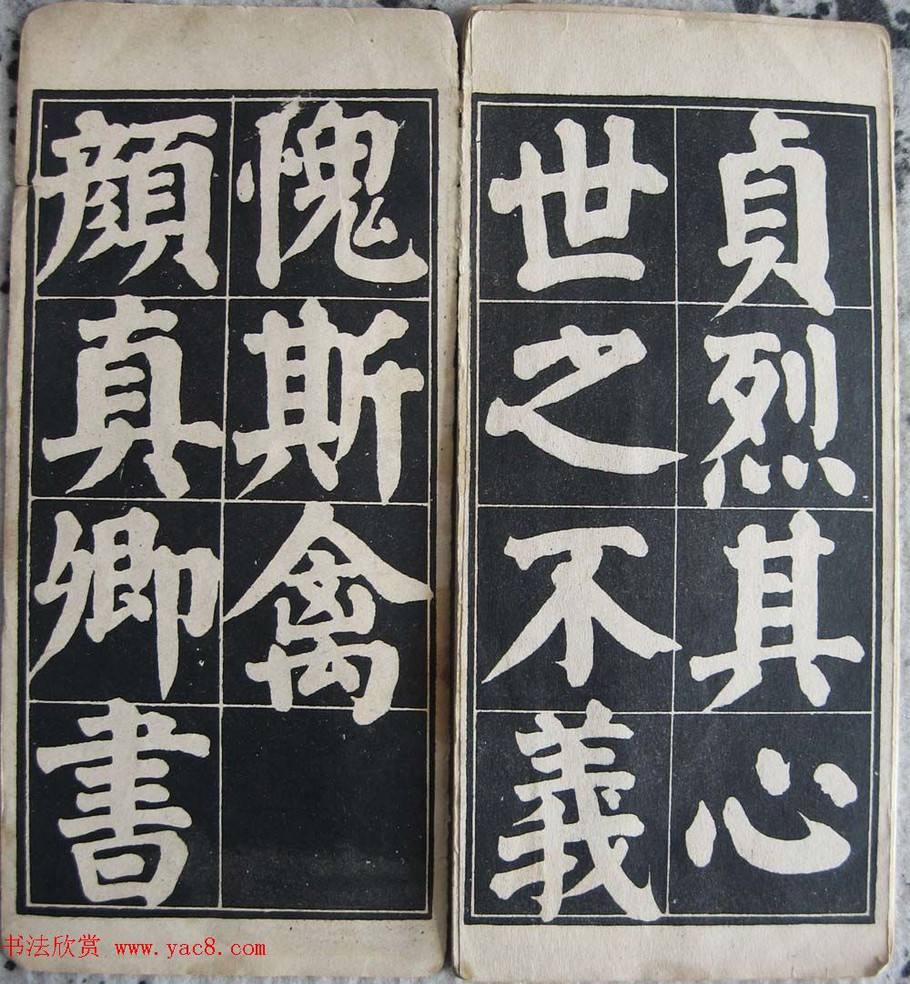 貞烈其心
世之不義
愧斯禽
顏真卿書
书法欣赏 www.yac8.com